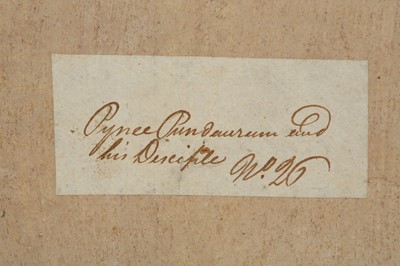 Pynee Pundaurum and
his Disciple No. 26